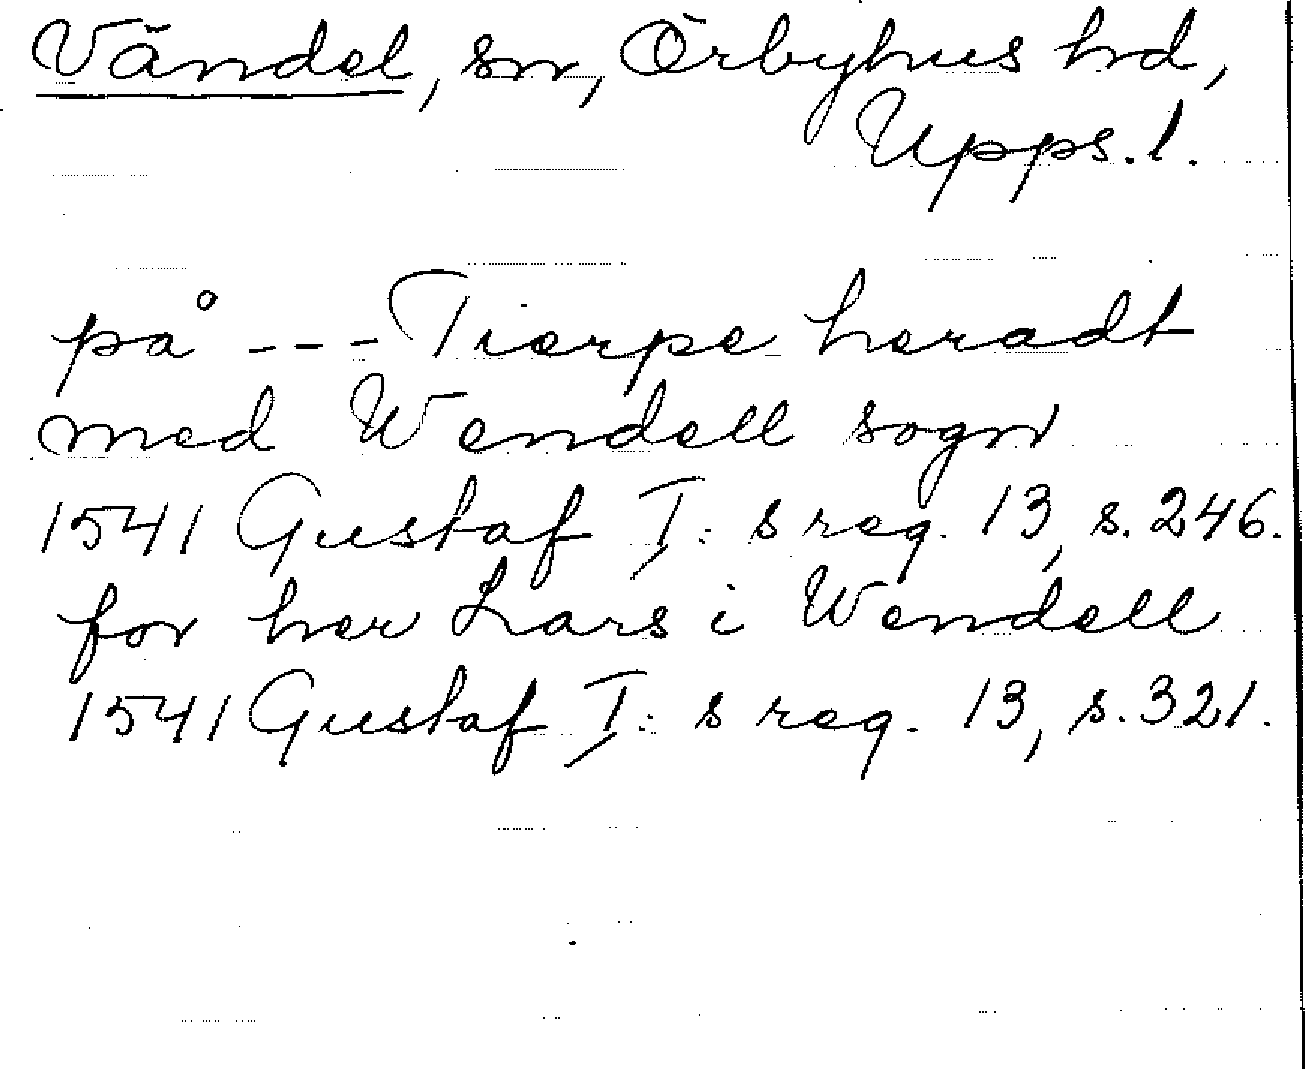 Vändel, sn, Örbyhus hd,
Upps. l.
på --- Tierpe heradt
med Wendell sogn
1541 Gustaf I: s reg. 13, s. 246.
for her Lars i Wendell
1541 Gustaf I: s reg. 13, s. 321.